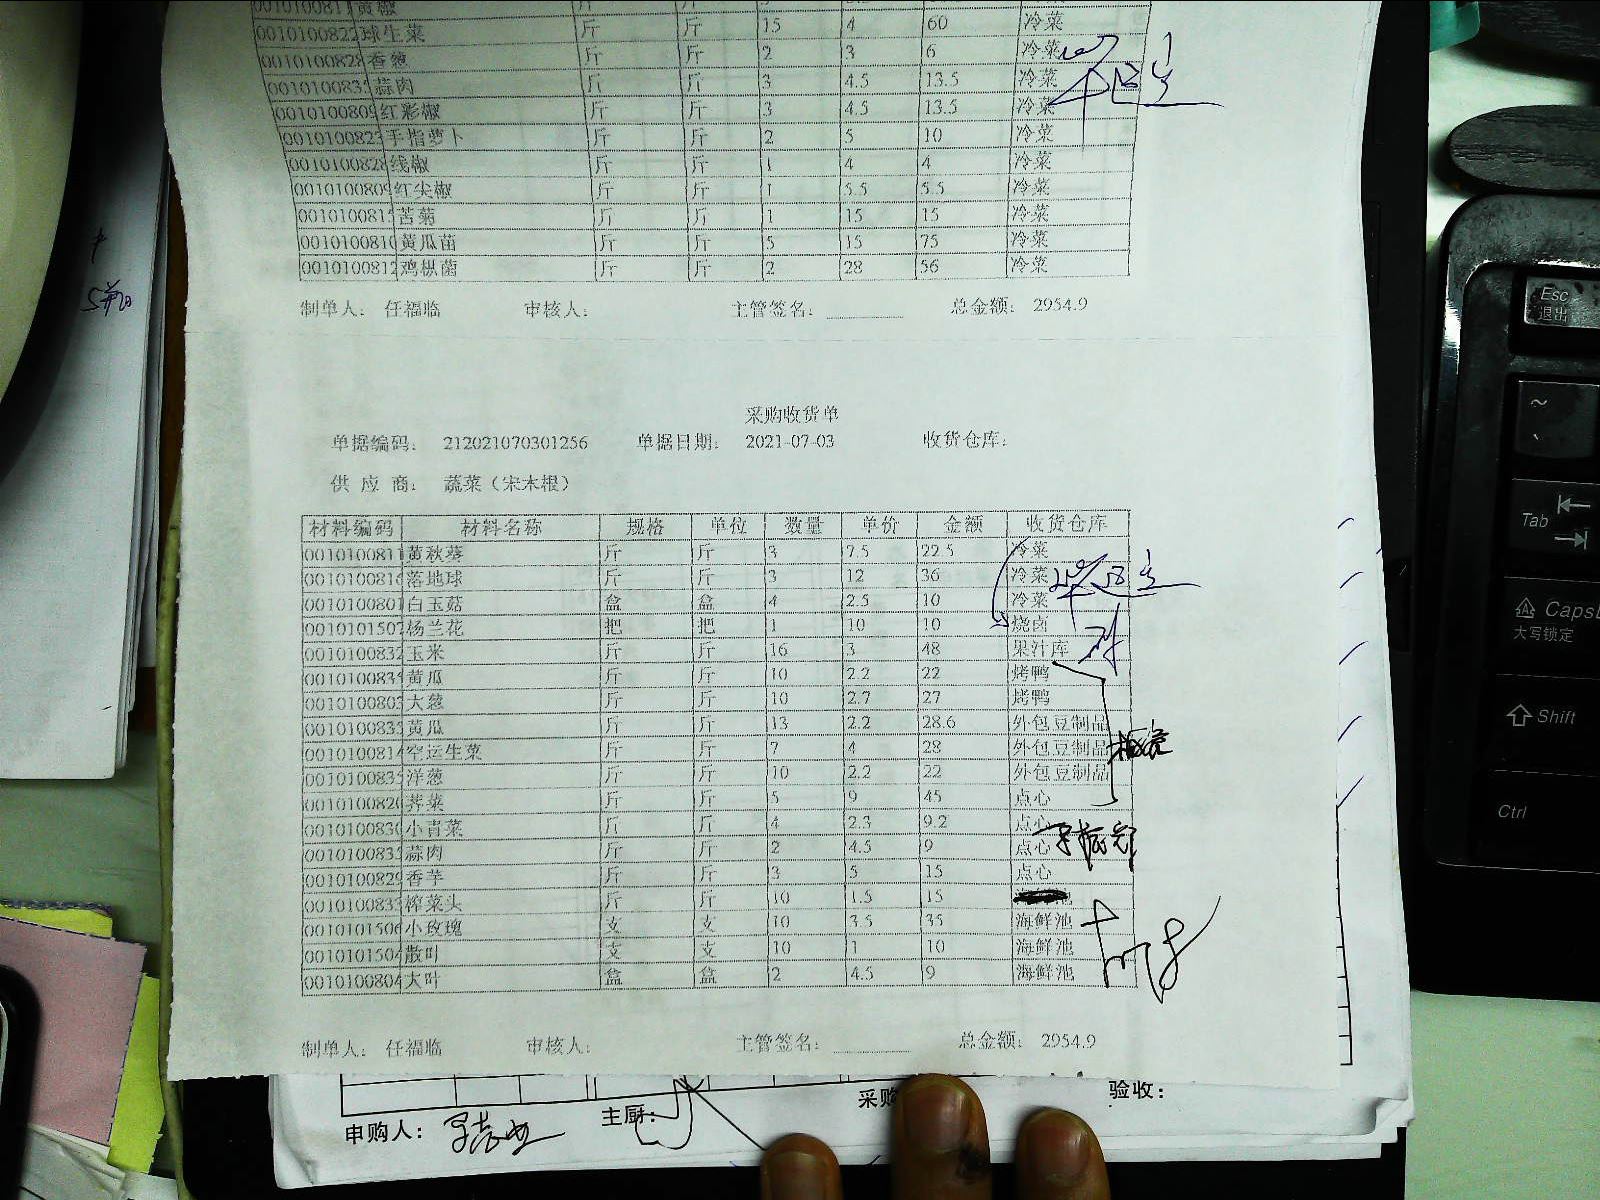 球生菜 斤 斤 15 4 60 冷菜
香葱 斤 斤 2 3 6 冷菜
蒜肉 斤 斤 3 4.5 13.5 冷菜
红彩椒 斤 斤 3 4.5 13.5 冷菜
手指萝卜 斤 斤 2 5 10 冷菜
线椒 斤 斤 1 4 4 冷菜
红尖椒 斤 斤 1 5.5 5.5 冷菜
苦菊 斤 斤 1 15 15 冷菜
黄瓜苗 斤 斤 5 15 75 冷菜
鸡枞菌 斤 斤 2 28 56 冷菜
制单人： 任福临 审核人： 主管签名： 总金额： 2954.9
采购收货单
单据编码： 212021070301256 单据日期： 2021-07-03 收货仓库：
供 应 商： 蔬菜（宋木根）
材料编码 材料名称 规格 单位 数量 单价 金额 收货仓库
0010100811 黄秋葵 斤 斤 3 7.5 22.5 冷菜
001010081 落地球 斤 斤 3 12 36 冷菜
0010100801 白玉菇 盒 盒 4 2.5 10 冷菜
001010150 杨兰花 把 把 1 10 10 烧卤
0010100832 玉米 斤 斤 16 3 48 果汁库
001010083 黄瓜 斤 斤 10 2.2 22 烤鸭
001010080 大葱 斤 斤 10 2.7 27 烤鸭
001010083 黄瓜 斤 斤 13 2.2 28.6 外包豆制品
001010081 空运生菜 斤 斤 7 4 28 外包豆制品
001010083 洋葱 斤 斤 10 2.2 22 外包豆制品
001010082 荠菜 斤 斤 5 9 45 点心
001010083 小青菜 斤 斤 4 2.3 9.2 点心
001010083 蒜肉 斤 斤 2 4.5 9 点心
0010100829 香芋 斤 斤 3 5 15 点心
001010083 榨菜头 斤 斤 10 1.5 15 池
001010150 小玫瑰 支 支 10 3.5 35 海鲜池
001010150 散叶 支 支 10 1 10 海鲜池
001010080 大叶 盒 盒 2 4.5 9 海鲜池
制单人： 任福临 审核人： 主管签名： 总金额： 2954.9
申购人： 主厨： 采购 验收：
Esc
退出
~
Tab
Caps
大写锁定
Shift
Ctrl